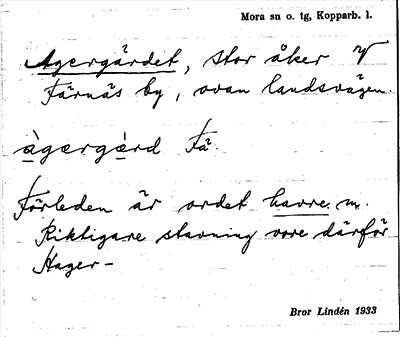 Mora sn o. tg, Kopparb. l.
Agergärdet, stor åker
Färnäs by, ovan landsvägen.
àgergèrd Fä.
Förleden är ordet havre m.
Riktigare stavning vore därför
Hager-
Bror Lindén 1933